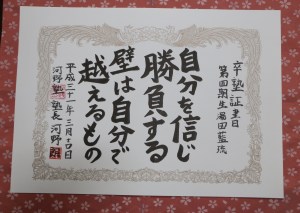 卒塾証書
自分を信じ
勝負する
壁は自分で
越えるもの
平成三十一年三月十日
河野塾 塾長 河野